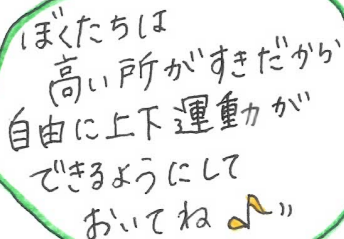 ぼくたちは
高い所がすきだから
自由に上下運動が
できるようにして
おいてね♪